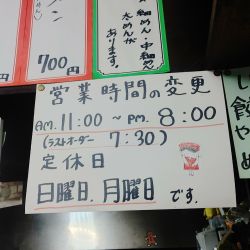 メン
700円
細めん・中細めん
太めんが
あります。
営業時間の変更
AM. 11:00 ~ PM. 8:00
(ラストオーダー 7:30)
定休日
日曜日.月曜日です.